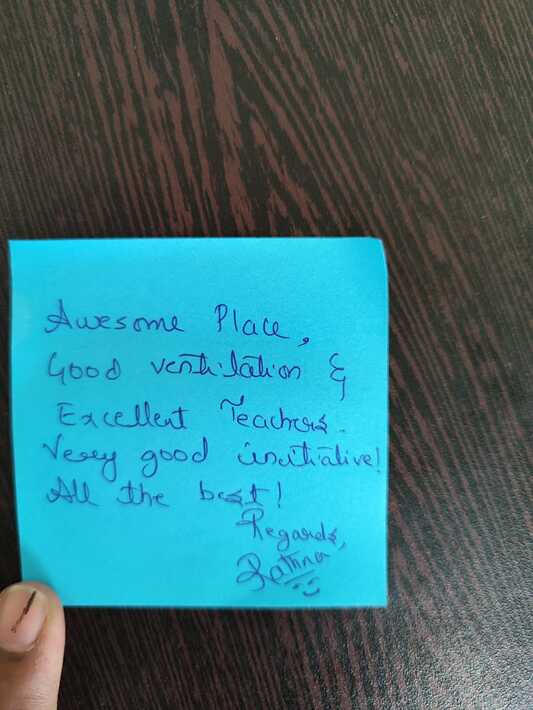 Awesome Place,
Good ventilation &
Excellent Teachers.
Very good initiative!
All the best!
Regards,
Rathna